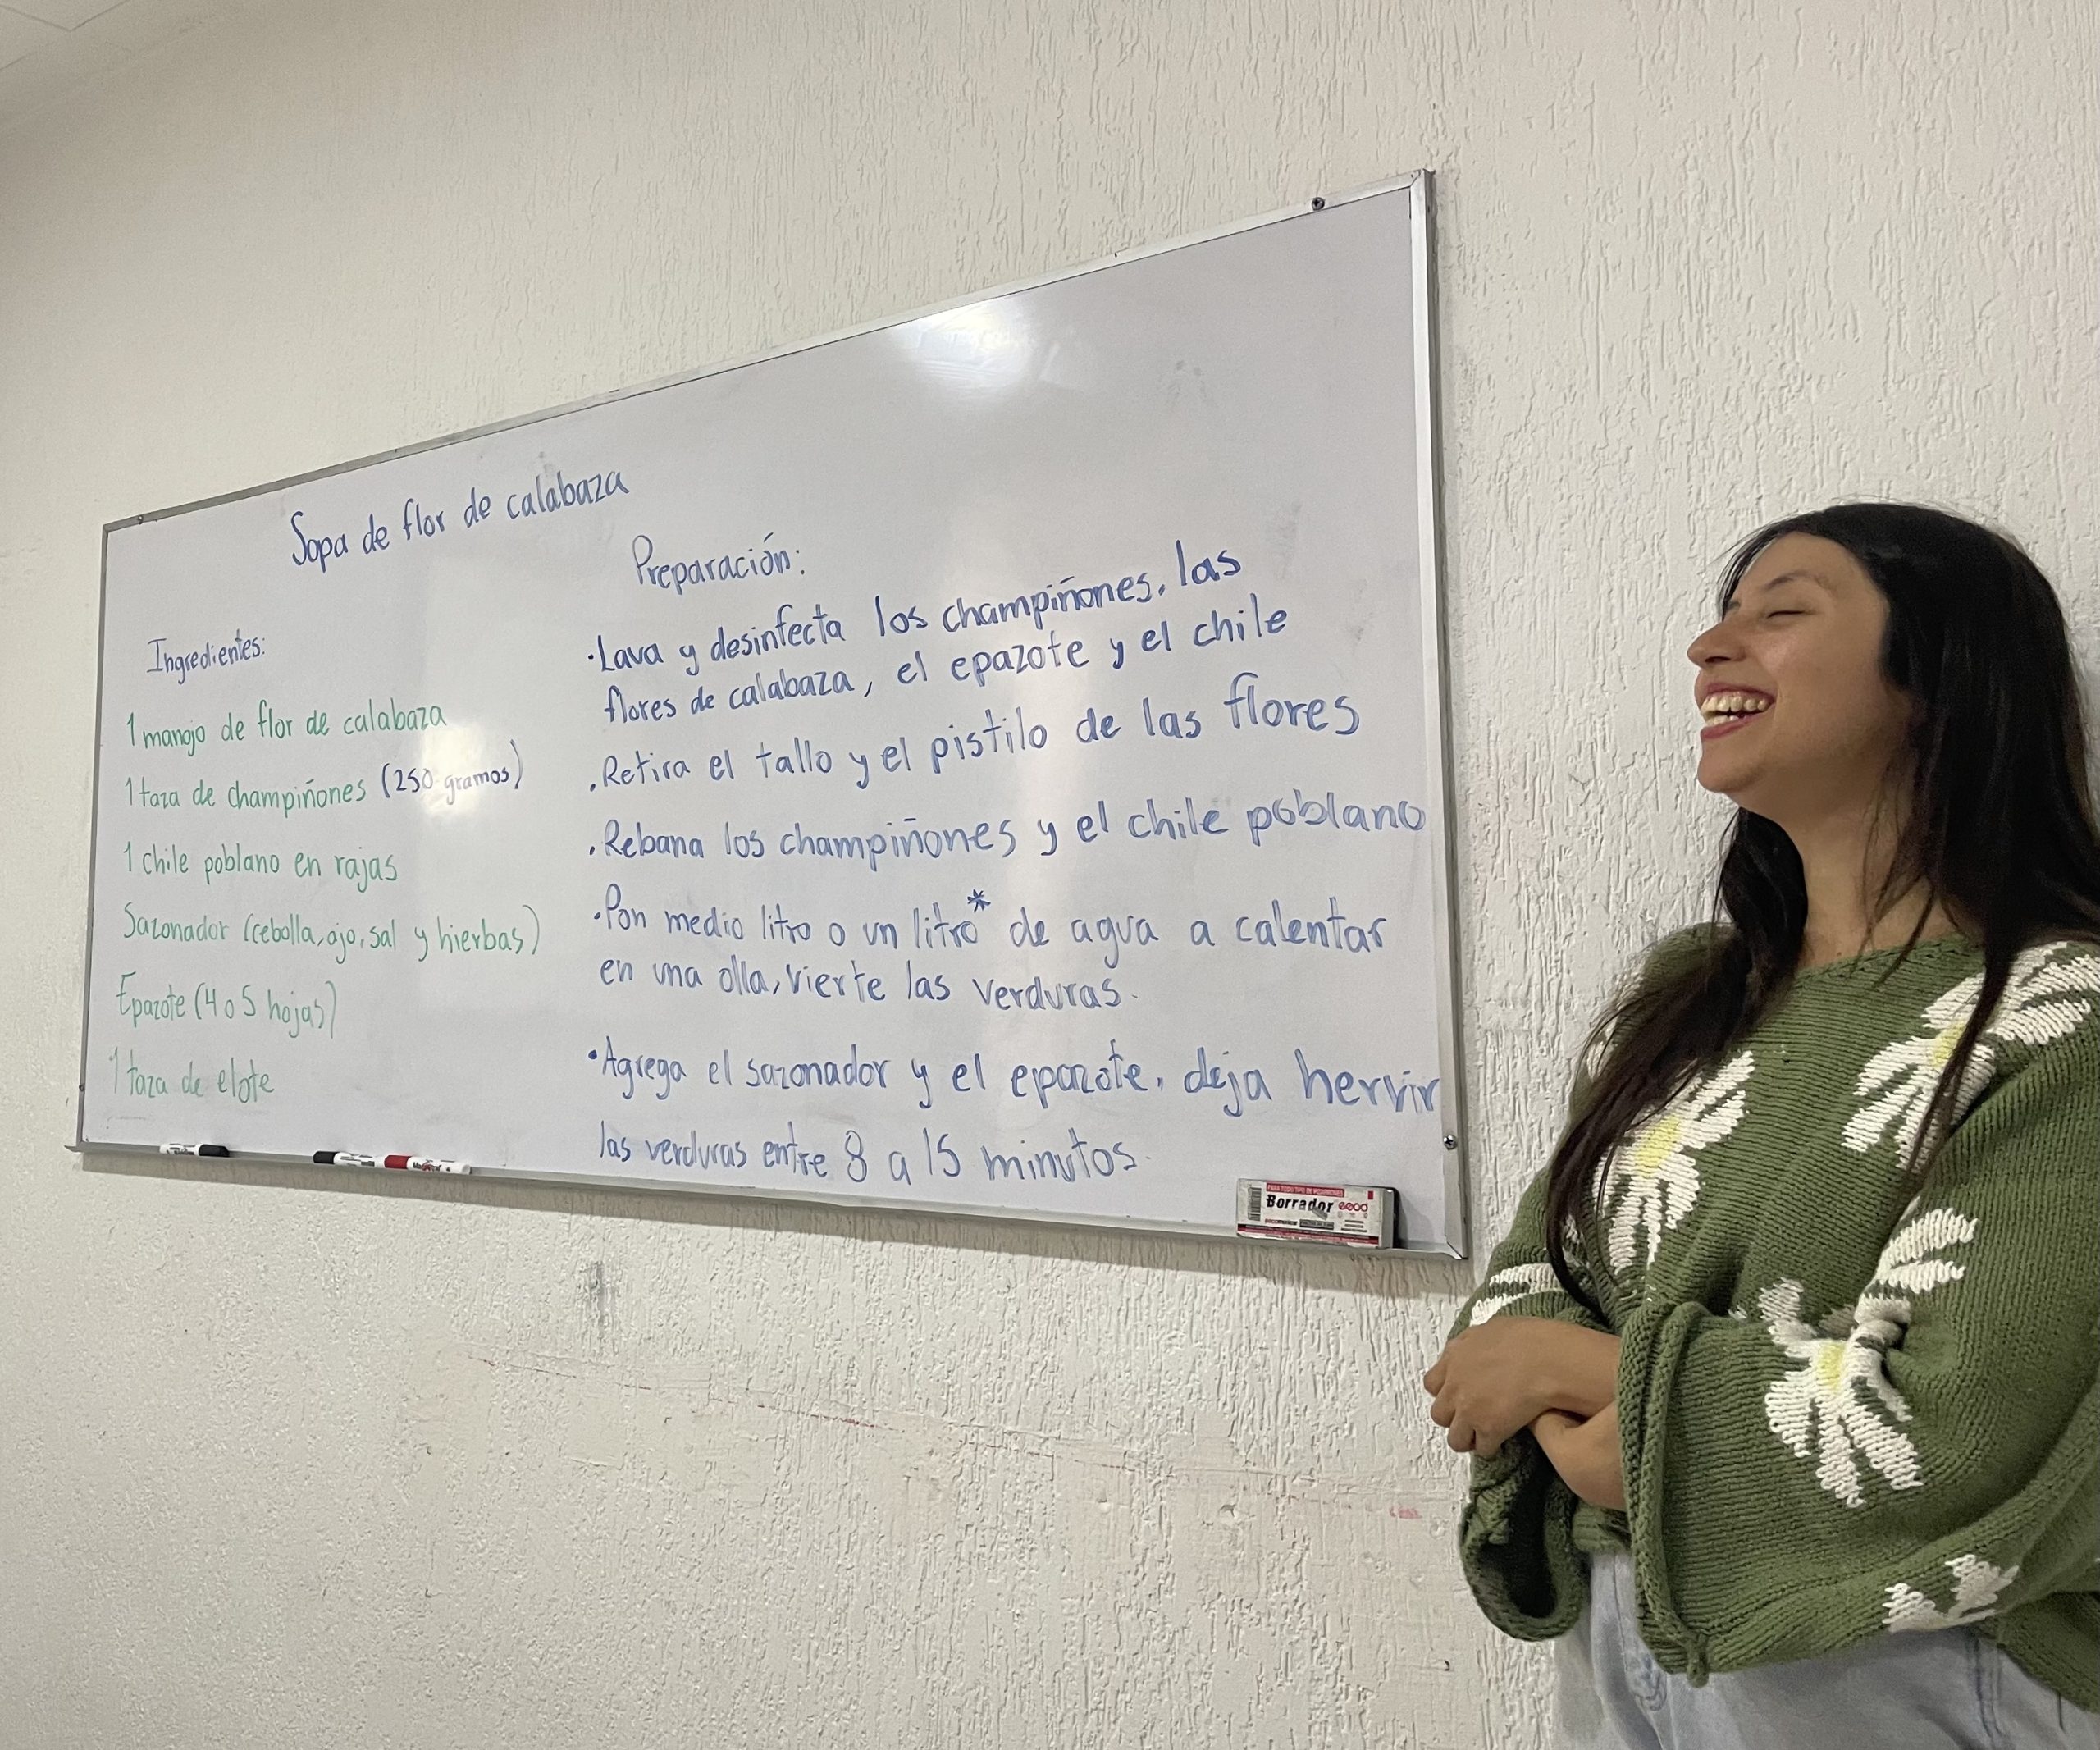 Sopa de flor de calabaza
Ingredientes:
1 manojo de flor de calabaza
1 taza de champiñones (250 gramos)
1 chile poblano en rajas
Sazonador (cebolla, ajo, sal y hierbas)
Epazote (4 o 5 hojas)
1 taza de elote
Preparación:
·Lava y desinfecta los champiñones, las
flores de calabaza, el epazote y el chile
·Retira el tallo y el pistilo de las flores
·Rebana los champiñones y el chile poblano
·Pon medio litro o un litro* de agua a calentar
en una olla, vierte las verduras.
·Agrega el sazonador y el epazote, deja hervir
las verduras entre 8 a 15 minutos.
Borrador